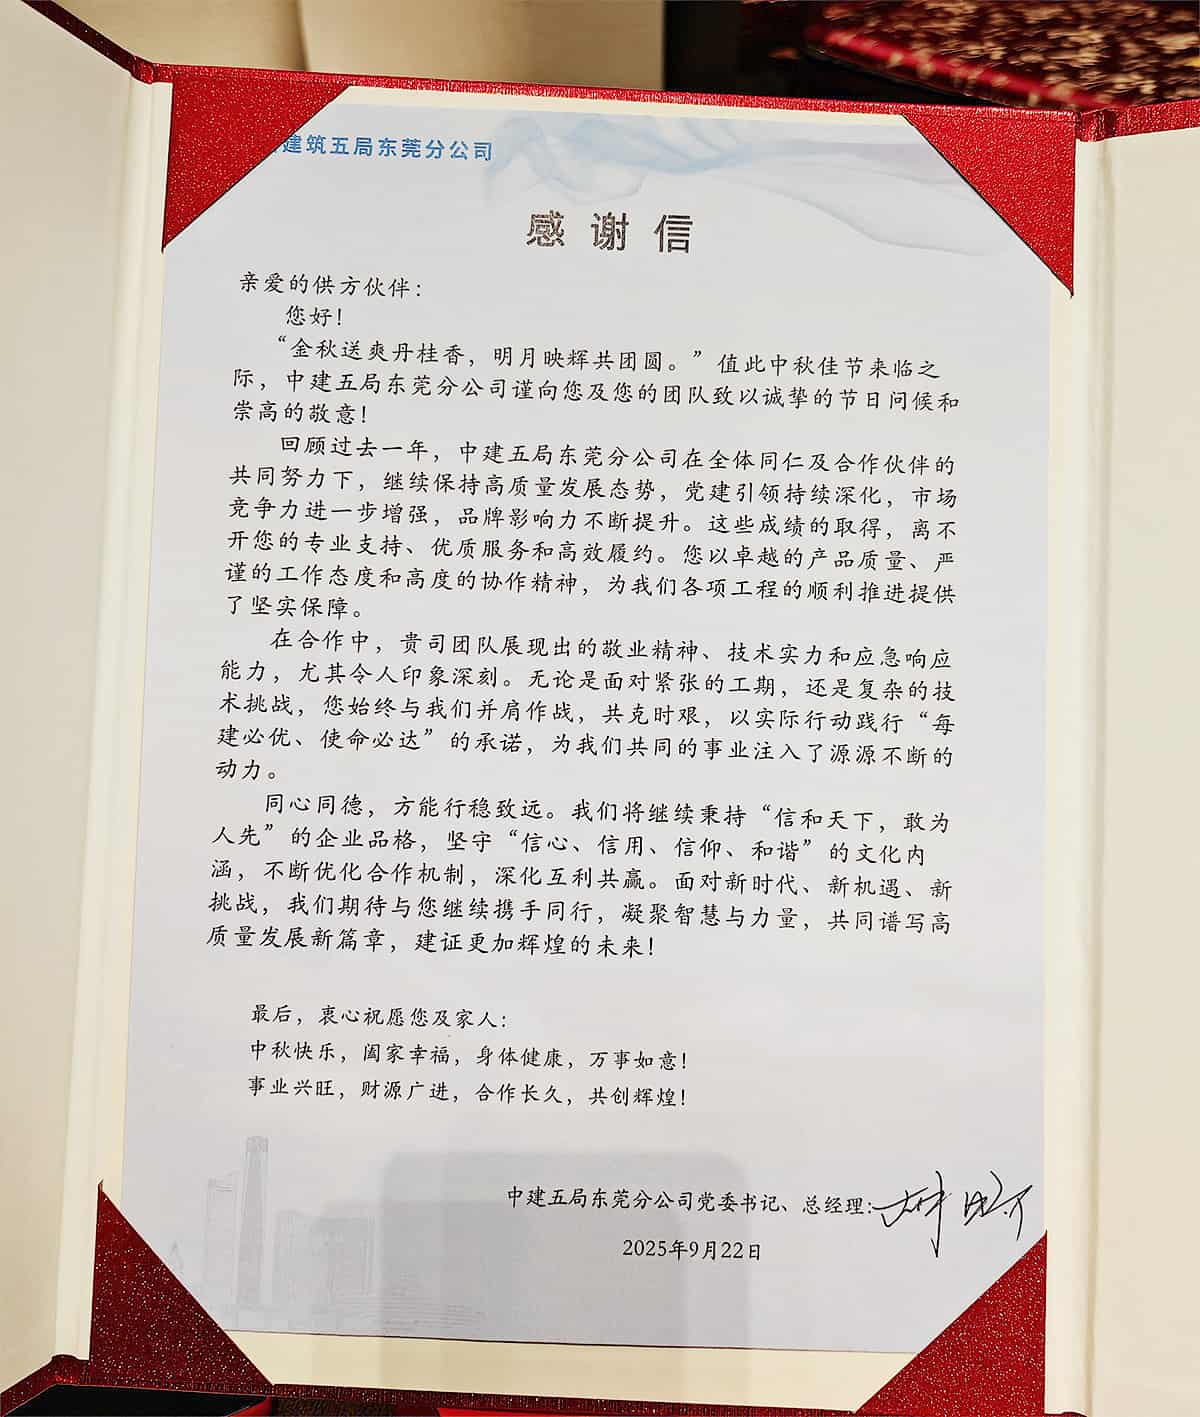 建筑五局东莞分公司
感谢信
亲爱的供方伙伴：
您好！
“金秋送爽丹桂香，明月映辉共团圆。”值此中秋佳节来临之
际，中建五局东莞分公司谨向您及您的团队致以诚挚的节日问候和
崇高的敬意！
回顾过去一年，中建五局东莞分公司在全体同仁及合作伙伴的
共同努力下，继续保持高质量发展态势，党建引领持续深化，市场
竞争力进一步增强，品牌影响力不断提升。这些成绩的取得，离不
开您的专业支持、优质服务和高效履约。您以卓越的产品质量、严
谨的工作态度和高度的协作精神，为我们各项工程的顺利推进提供
了坚实保障。
在合作中，贵司团队展现出的敬业精神、技术实力和应急响应
能力，尤其令人印象深刻。无论是面对紧张的工期，还是复杂的技
术挑战，您始终与我们并肩作战，共克时艰，以实际行动践行“每
建必优、使命必达”的承诺，为我们共同的事业注入了源源不断的
动力。
同心同德，方能行稳致远。我们将继续秉持“信和天下，敢为
人先”的企业品格，坚守“信心、信用、信仰、和谐”的文化内
涵，不断优化合作机制，深化互利共赢。面对新时代、新机遇、新
挑战，我们期待与您继续携手同行，凝聚智慧与力量，共同谱写高
质量发展新篇章，建证更加辉煌的未来！
最后，衷心祝愿您及家人：
中秋快乐，阖家幸福，身体健康，万事如意！
事业兴旺，财源广进，合作长久，共创辉煌！
中建五局东莞分公司党委书记、总经理：
2025年9月22日